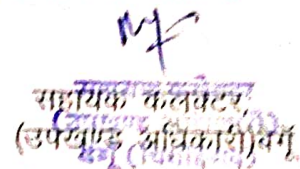 सहायक कलक्टर,
(उपखण्ड अधिकारी)बेगूँ